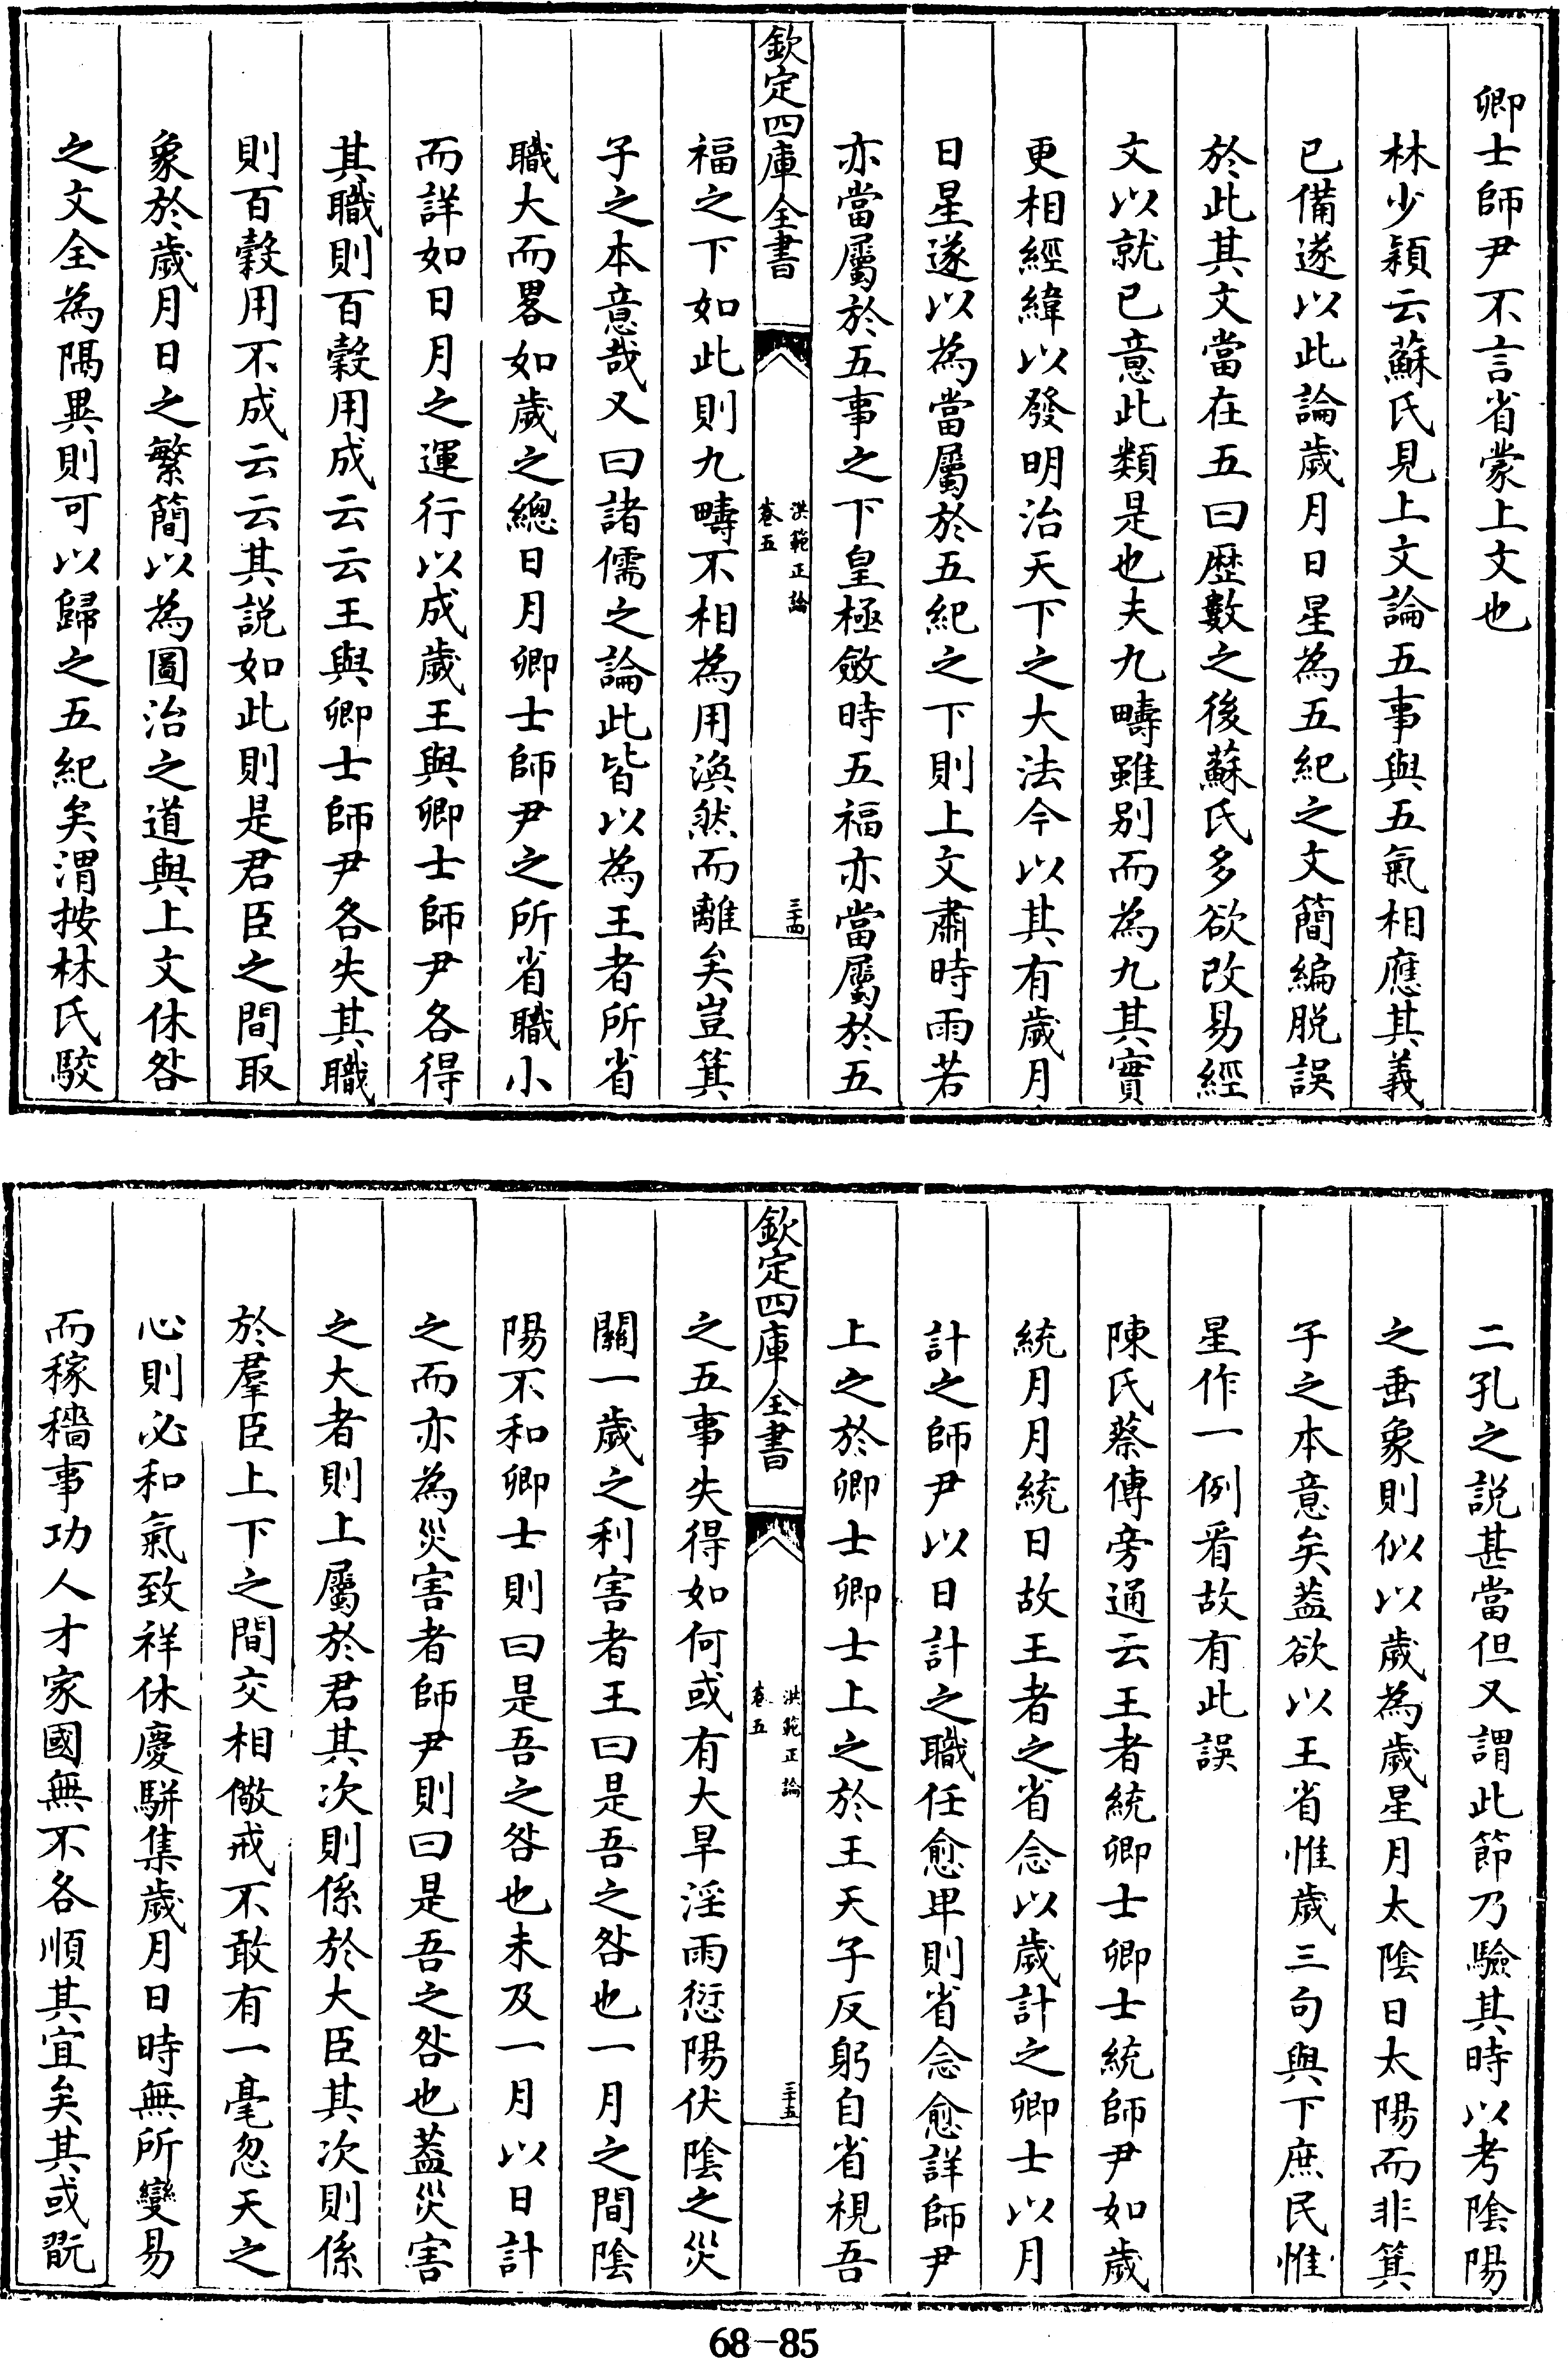 卿士師尹不言省蒙上文也
林少穎云蘇氏見上文論五事與五氣相應其義
已備遂以此論歲月日星為五紀之文簡編脱誤
於此其文當在五曰歴數之後蘇氏多欲改易經
文以就已意此類是也夫九疇雖别而為九其實
更相經緯以發明治天下之大法今以其有歲月
日星遂以為當屬於五紀之下則上文肅時雨若
亦當屬於五事之下皇極斂時五福亦當屬於五
欽定四庫全書
洪範正論
卷五
三十四
福之下如此則九疇不相為用渙然而離矣豈箕
子之本意哉又曰諸儒之論此皆以為王者所省
職大而畧如歲之總日月卿士師尹之所省職小
而詳如日月之運行以成歲王與卿士師尹各得
其職則百穀用成云云王與卿士師尹各失其職
則百穀用不成云云其説如此則是君臣之間取
象於歲月日之繁簡以為圖治之道與上文休咎
之文全為隔異則可以歸之五紀矣渭按林氏駮
二孔之説甚當但又謂此節乃驗其時以考陰陽
之垂象則似以歲為歲星月太陰日太陽而非箕
子之本意矣葢欲以王省惟歲三句與下庶民惟
星作一例看故有此誤
陳氏蔡傳旁通云王者統卿士卿士統師尹如歲
統月月統日故王者之省念以歲計之卿士以月
計之師尹以日計之職任愈卑則省念愈詳師尹
上之於卿士卿士上之於王天子反躬自省視吾
欽定四庫全書
洪範正論
卷五
三十五
之五事失得如何或有大旱淫雨愆陽伏陰之災
關一歲之利害者王曰是吾之咎也一月之間陰
陽不和卿士則曰是吾之咎也未及一月以日計
之而亦為災害者師尹則曰是吾之咎也葢災害
之大者則上屬於君其次則係於大臣其次則係
於羣臣上下之間交相儆戒不敢有一毫忽天之
心則必和氣致祥休慶駢集歲月日時無所變易
而稼穡事功人才家國無不各順其宜矣其或翫
68-85